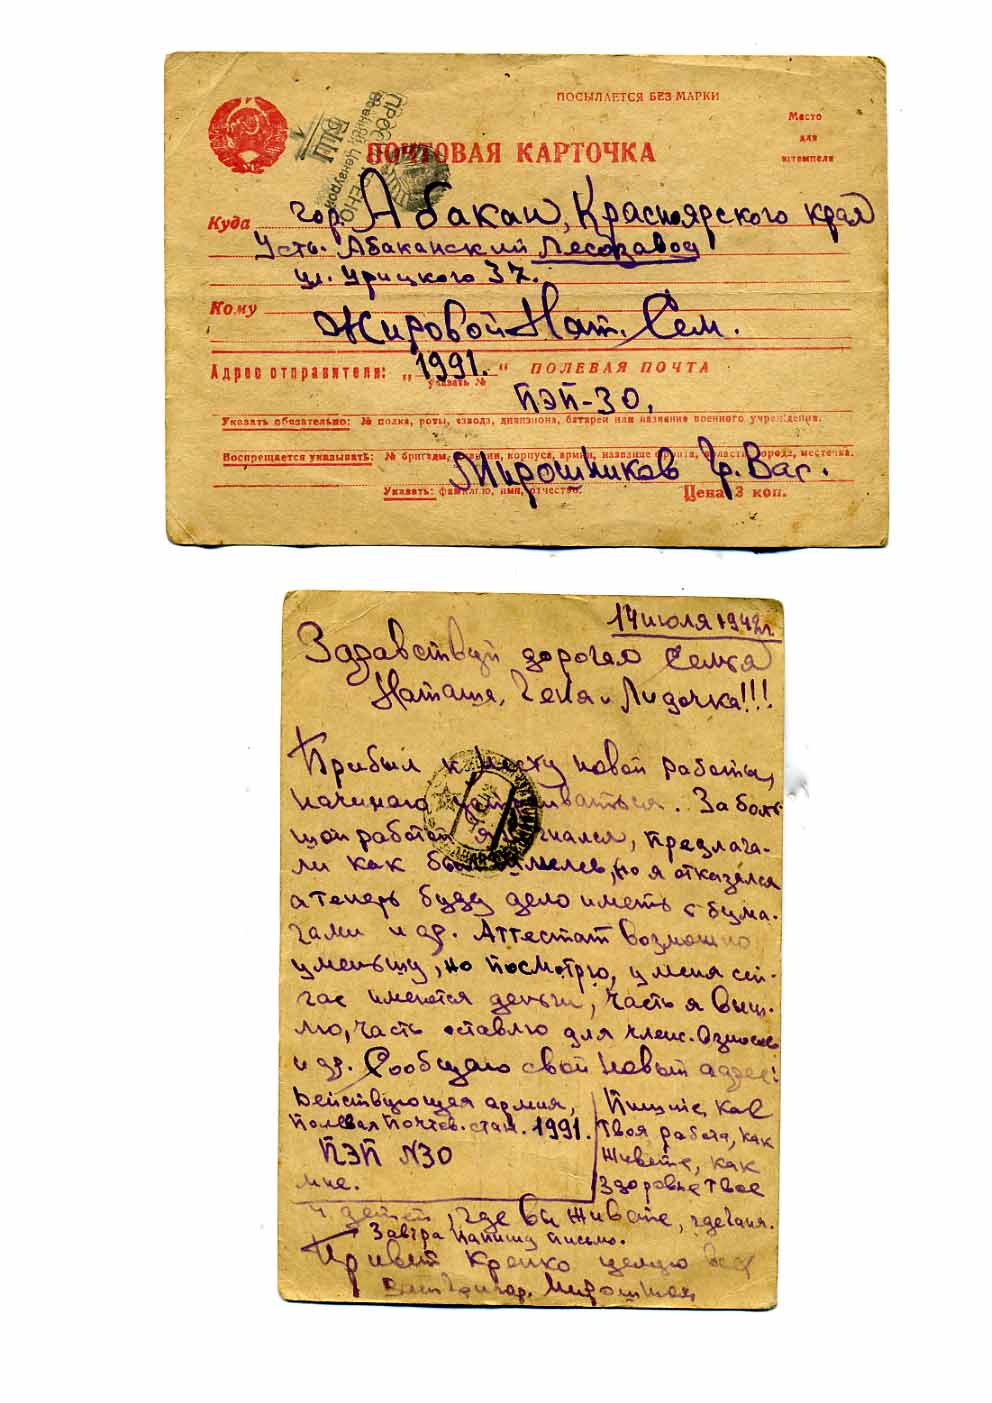 ПОСЫЛАЕТСЯ БЕЗ МАРКИ
Место
для
штемпеля
ПОЧТОВАЯ КАРТОЧКА
Военной Цензурой
Куда гор. Абакан, Красноярского края
Усть-Абаканский Лесозавод
ул. Урицкого 37.
Кому
Жировой Нат. Сем.
Адрес отправителя: „ 1991. “ ПОЛЕВАЯ ПОЧТА
указать №
ПЭП-30,
Указать обязательно: № полка, роты, взвода, дивизиона, батареи или название военного учреждения.
Воспрещается указывать: № бригады, дивизии, корпуса, армии, название фронта, области, города, местечка.
Мирошников Гр. Вас.
Указать: фамилию, имя, отчество. Цена 3 коп.
14 июля 1942 г.
Здравствуй дорогая Семья
Наташа, Гена и Лидочка!!!
Прибыл к месту новой работы,
начинаю устраиваться. За боль-
шой работой я гнался, предлага-
ли как был, но я отказался
а теперь буду дело иметь с бума-
гами и др. Аттестат возможно
уменьшу, но посмотрю, у меня сей-
час имеются деньги, часть я выш-
лю, часть оставлю для член. взносов
и др. Сообщаю свой новый адрес:
Действующая армия,
Полевая Почтов. стан. 1991.
ПЭП N30
мне.
Пишите, как
твоя работа, как
живете, как
здоровье твое
и детей, где вы живете, где
Завтра напишу письмо.
Привет Крепко целую вас
Григор. Мирошник